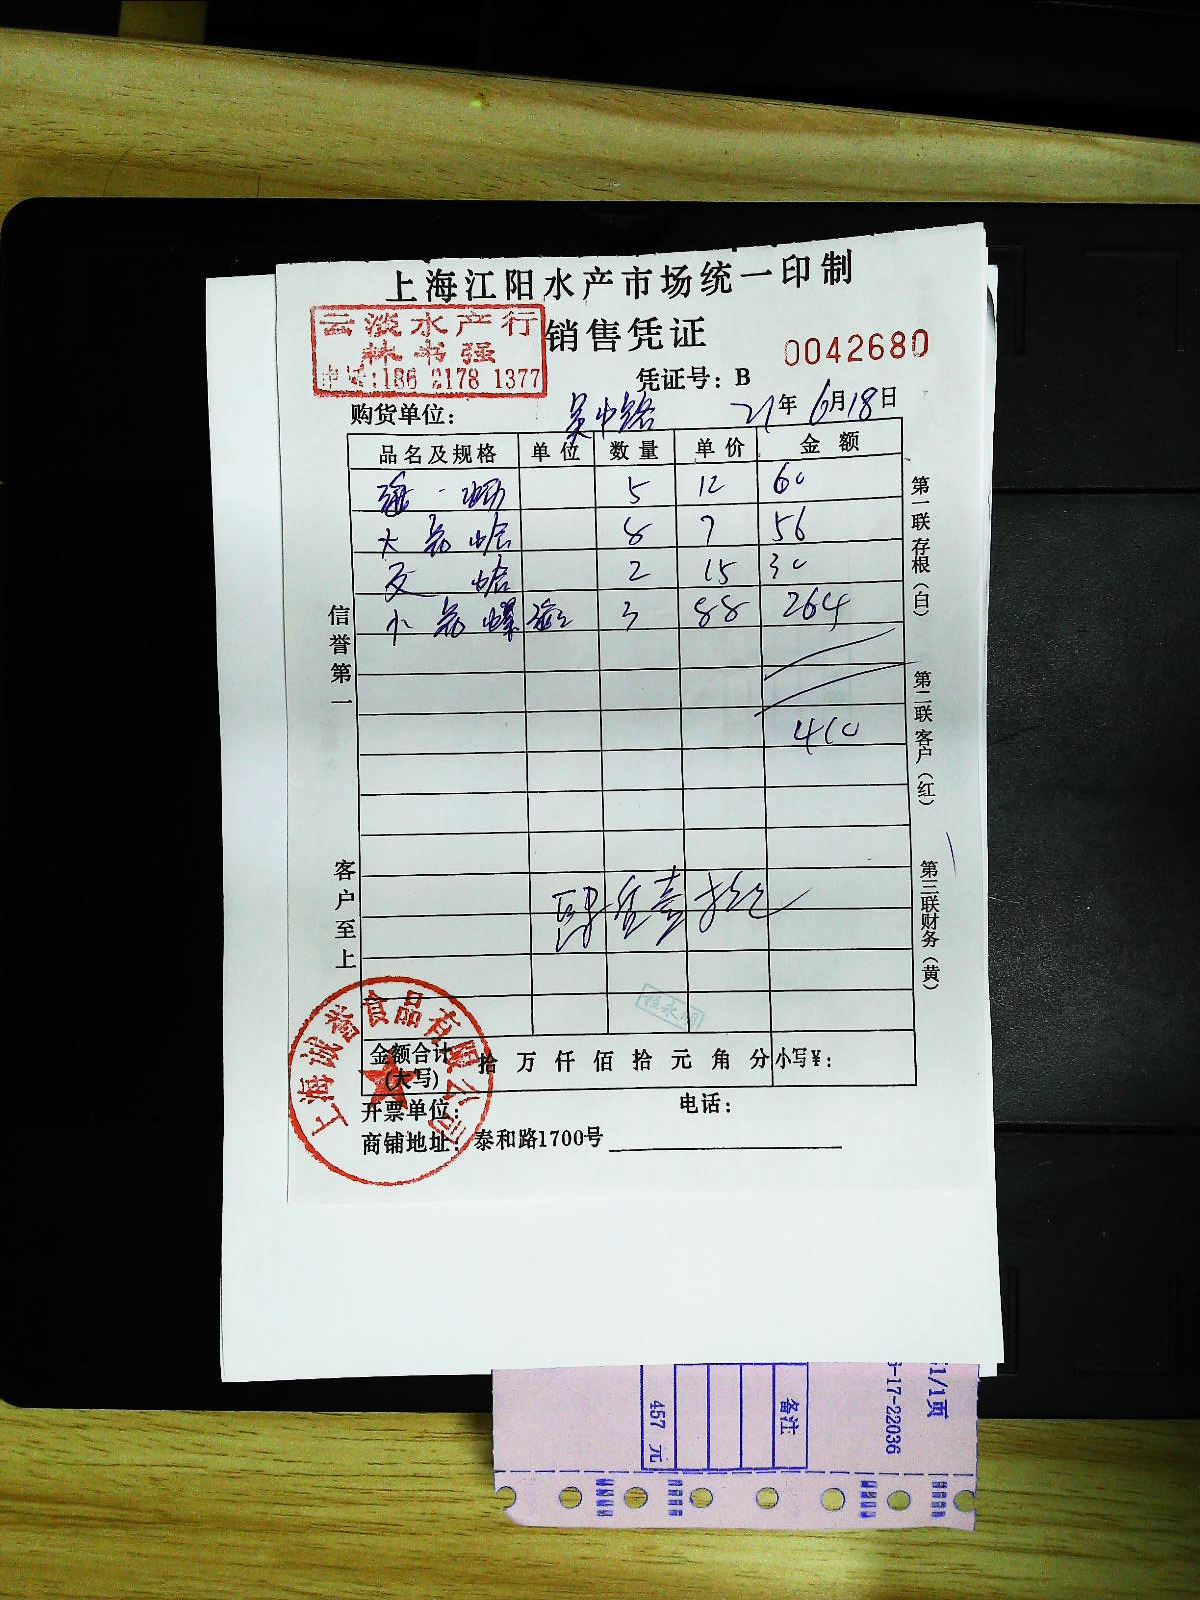 上海江阳水产市场统一印制
云淡水产行
林书强
电话:186 2178 1377
销售凭证
0042680
凭证号: B
购货单位: 吴中路 21年6月18日
品名及规格 单位 数量 单价 金额
5 12 60
大花蛤 8 7 56
文蛤 2 15 30
小花螺 3 88 264
410
肆佰壹拾元
金额合计(大写) 拾 万 仟 佰 拾 元 角 分 小写¥:
开票单位: 电话:
商铺地址: 泰和路1700号
信誉第一
客户至上
第一联存根(白)
第二联客户(红)
第三联财务(黄)
上海诚誉食品有限公司
1/1页
-17-22036
备注
457 元